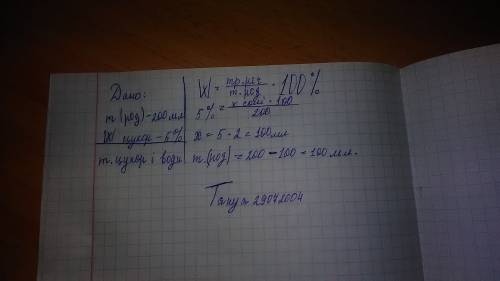 Дано:
m(роз) - 200 мл
W цукор - 5%
m. цукор і води
W = mр.реч / m.роз · 100%
5% = x солі · 100 / 200
x = 5 · 2 = 100мл
m(роз) = 200 - 100 = 100мл.
Tanya 29042004